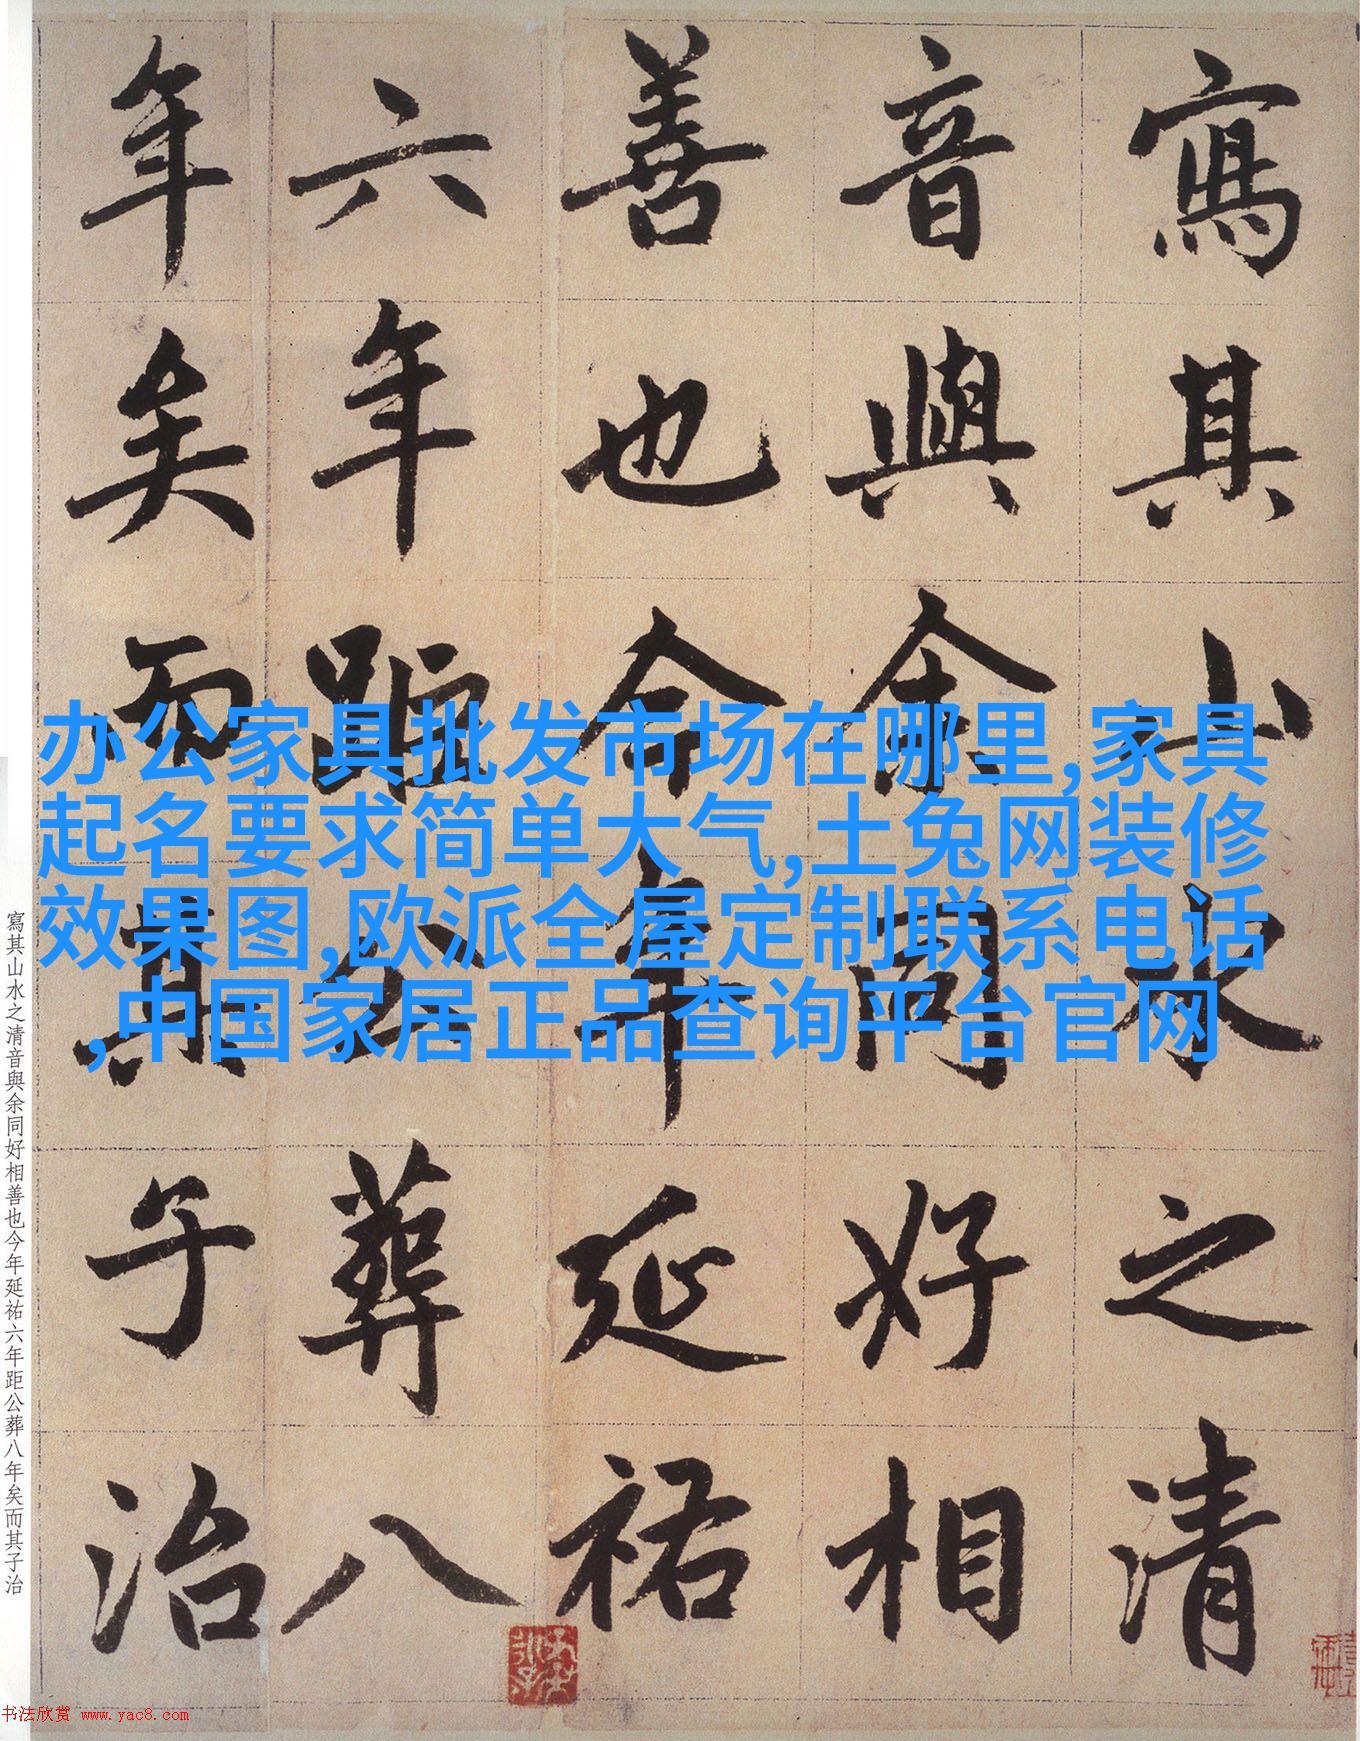 寫其山水之清
音與余同好相
善也今年延祐
六年距公葬八
年矣而其子治
办公家具批发市场在哪里,家具
起名要求简单大气,土兔网装修
效果图,欧派全屋定制联系电话
,中国家居正品查询平台官网
寫其山水之清音與余同好相善也今年延祐六年距公葬八年矣而其子治
书法欣赏 www.yac8.com